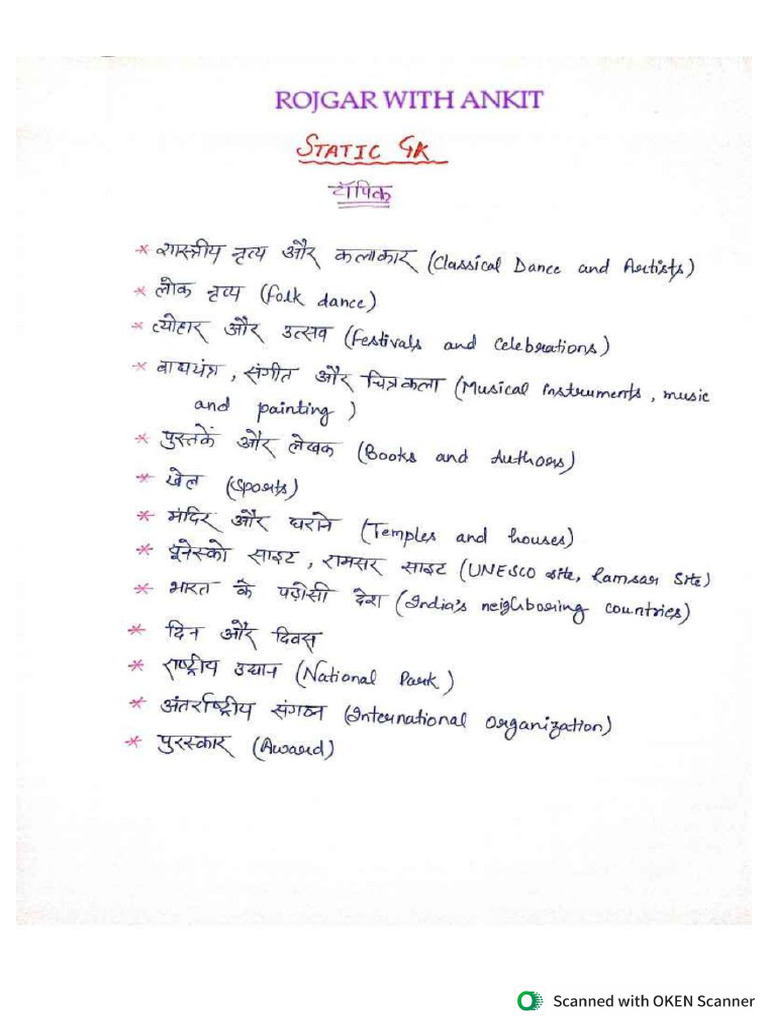 ROJGAR WITH ANKIT
STATIC GK
टॉपिक
* शास्त्रीय नृत्य और कलाकार (Classical Dance and Artists)
* लोक नृत्य (folk dance)
* त्योहार और उत्सव (Festivals and Celebrations)
* वाद्ययंत्र, संगीत और चित्रकला (Musical instruments, music
and painting)
* पुस्तकें और लेखक (Books and Authors)
* खेल (Sports)
* मंदिर और घराने (Temples and houses)
* यूनेस्को साइट, रामसर साइट (UNESCO site, Ramsar Site)
* भारत के पड़ोसी देश (India's neighboring countries)
* दिन और दिवस
* राष्ट्रीय उद्यान (National Park)
* अंतर्राष्ट्रीय संगठन (International Organization)
* पुरस्कार (Award)
Scanned with OKEN Scanner